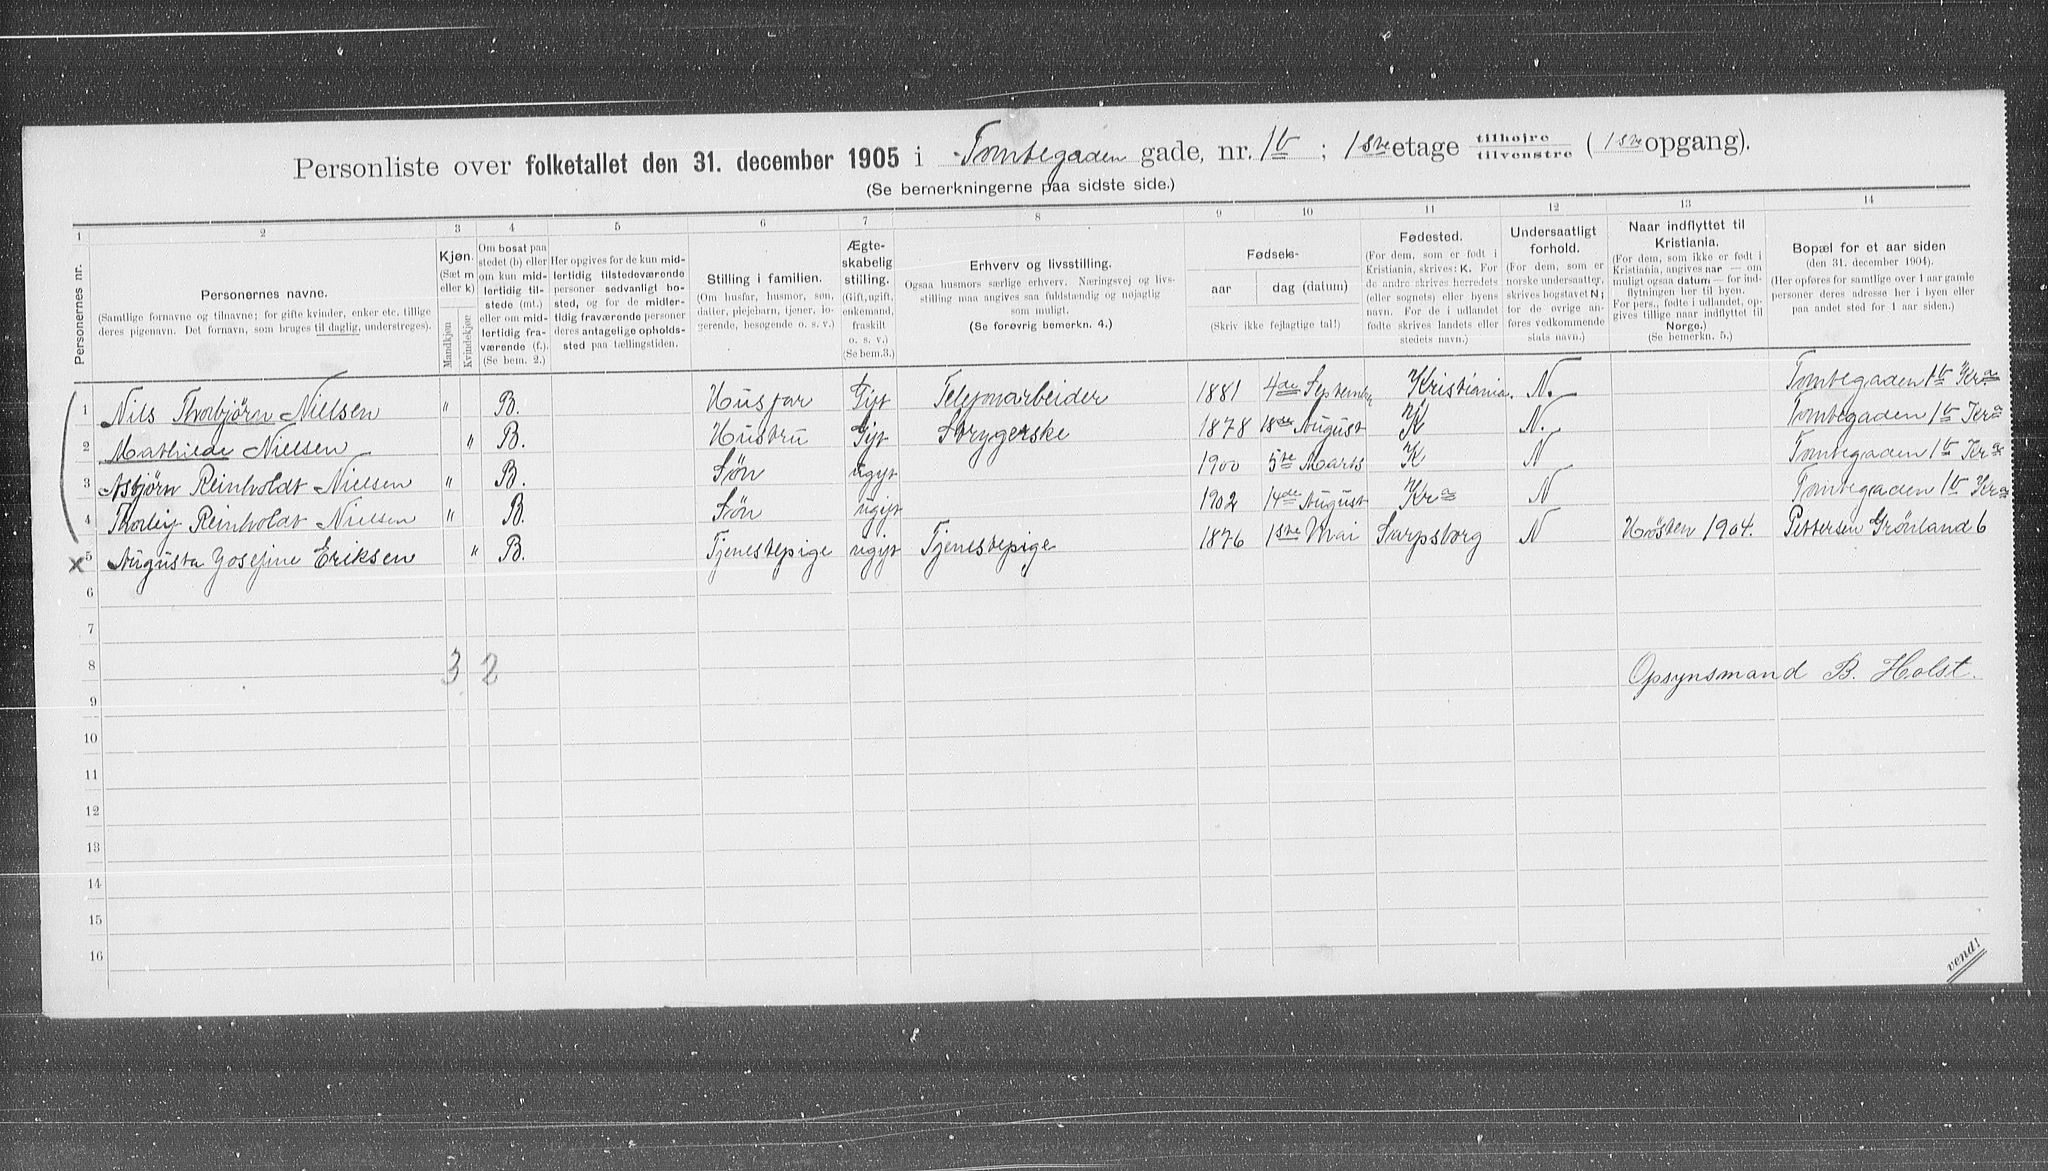 Personliste over folketallet den 31. december 1905 i Tomtegaden gade, nr. 1b ; 1ste etage tilhøjre tilvenstre ( 1ste opgang).
(Se bemerkningerne paa sidste side.)
1 2 3 4 5 6 7 8 9 10 11 12 13 14
Personernes nr.
Personernes navne.
(Samtlige fornavne og tilnavne; for gifte kvinder, enker etc. tillige deres pigenavn. Det fornavn, som bruges til daglig, understreges).
Kjøn.
(Sæt m eller k)
Mandkjøn
Kvindekjøn
Om bosat paa stedet (b) eller om kun midlertidig tilstede (mt.) eller om midlertidig fraværende (f.). (Se bem. 2.)
Her opgives for de kun midlertidig tilstedeværende personer sedvanligt bosted, og for de midlertidig fraværende personer deres antagelige opholdssted paa tællingstiden.
Stilling i familien.
(Om husfar, husmor, søn, datter, plejebarn, tjener, logerende, besøgende o. s. v.)
Ægteskabelig stilling.
(Gift, ugift, enkemand, fraskilt o. s. v.)
(Se bem. 3.)
Erhverv og livsstilling.
Ogsaa husmors særlige erhverv. Næringsvej og livsstilling maa angives saa fuldstændig og nøjagtig som muligt.
(Se forøvrig bemerkn. 4.)
Fødsels-
aar
dag (datum)
(Skriv ikke fejlagtige tal!)
Fødested.
(For dem, som er født i Kristiania, skrives: K. For de andre skrives herredets (eller sognets) eller byens navn. For de i udlandet fødte skrives landets eller stedets navn.)
Undersaatligt forhold.
(For dem, som er norske undersaatter, skrives bogstavet N; for de øvrige anføres vedkommende stats navn.)
Naar indflyttet til Kristiania.
(For dem, som ikke er født i Kristiania, angives aar — om muligt ogsaa datum — for indflytningen her til byen. For pers., fødte i udlandet, opgives tillige naar indflyttet til Norge.)
(Se bemerkn. 5.)
Bopæl for et aar siden
(den 31. december 1904).
(Her opføres for samtlige over 1 aar gamle personer deres adresse her i byen eller paa andet sted for 1 aar siden.)
1 Nils Thorbjørn Nielsen " B. Husfar Gift Telefonarbeider 1881 4de September Kristiania. N. Tomtegaden 1b Kra
2 Mathilde Nielsen " B. Hustru Gift Strygerske 1878 18de August K N. Tomtegaden 1b Kra
3 Asbjørn Reinholdt Nielsen " B. Søn ugift 1900 5te Marts K N Tomtegaden 1b Kra
4 Thorleif Reinholdt Nielsen " B. Søn ugift 1902 14de August Kra N Tomtegaden 1b Kra
x 5 Augusta Josefine Eriksen " B. Tjenestepige ugift Tjenestepige 1876 1ste Mai Sarpsborg N Høsten 1904. Pettersen Grønland 6
6
7
8 3 2 Opsynsmand B. Holst.
9
10
11
12
13
14
15
16
vend!